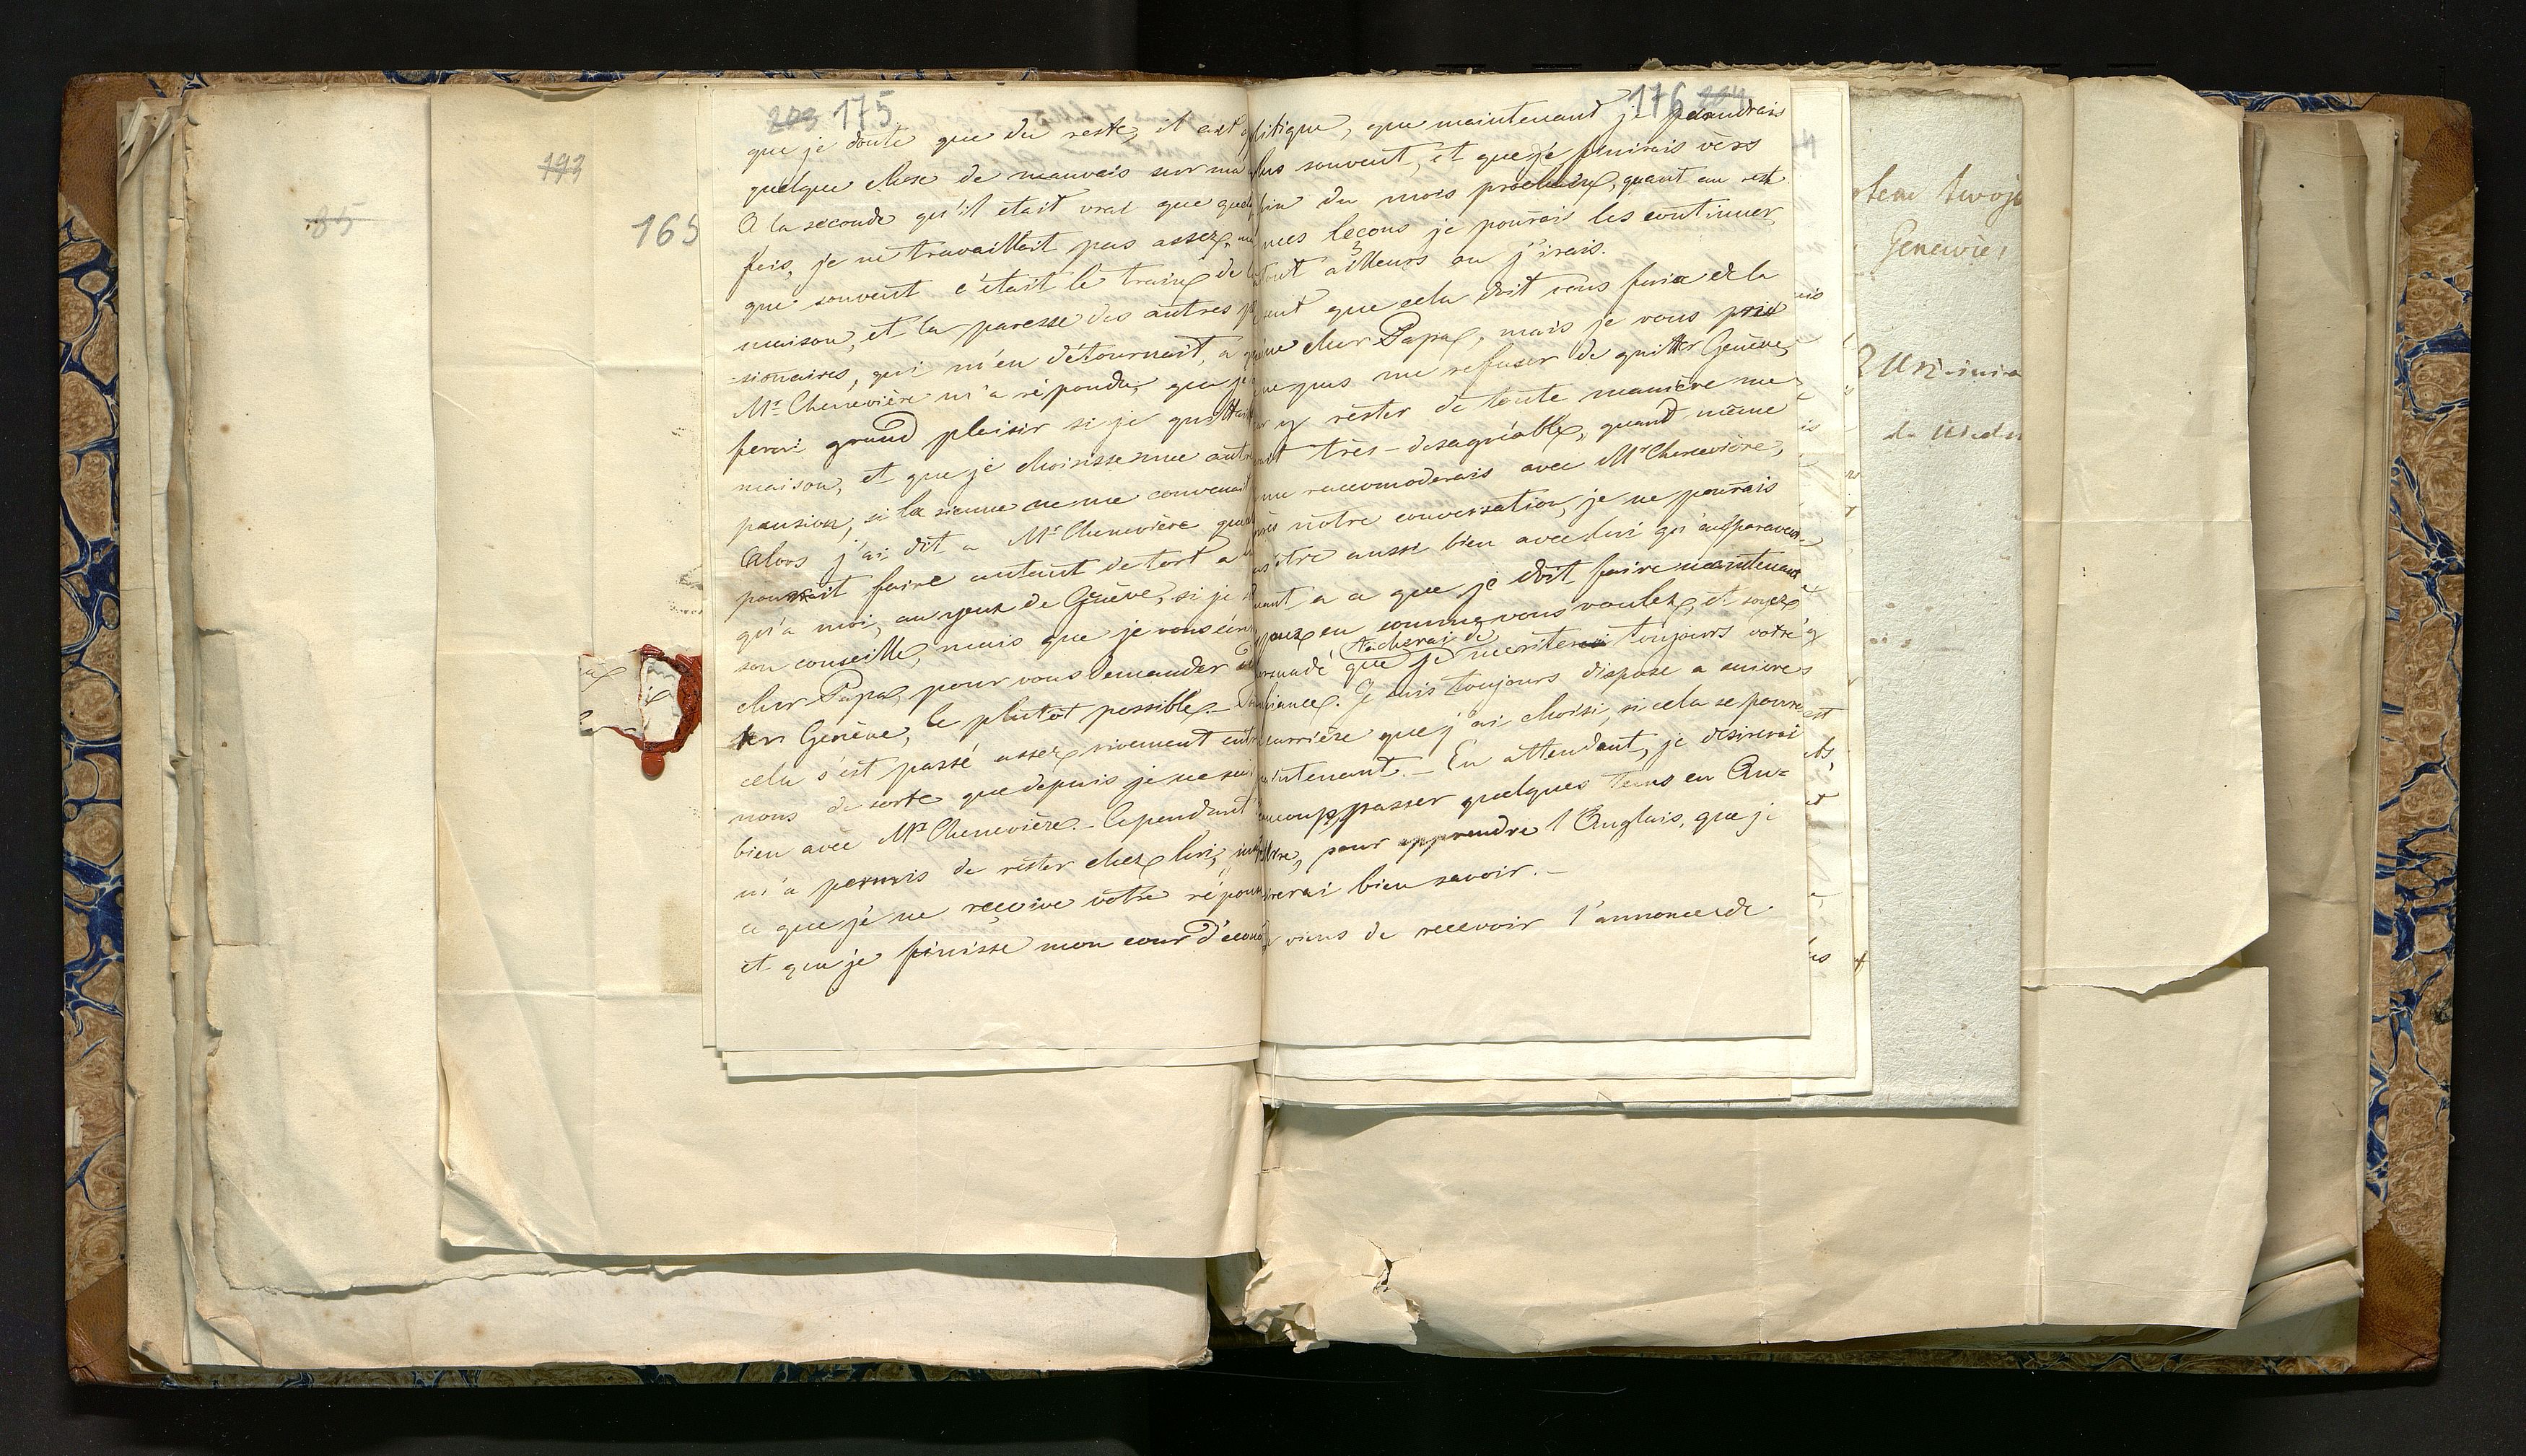 85
193
165
203 175
que je doute que du reste, il ait
quelque chose de mauvais sur ma
A la seconde qu'il était vrai que quel
fois, je ne travaillait pas assez, ma
que souvent c'était le train de la
maison, et la paresse des autres p
sionaires, qui m'en détournait, a
Mr Chenevière m'a répondu, que je
ferai grand plaisir si je quittais
maison, et que je choisisse une autre
pension, si la sienne ne me convenait
Alors j'ai dit a Mr Chenevière que
pourrait faire autant de tort a
qu'a moi, au yeux de Genève, si je
son conseille, mais que je vous écri
cher Papa, pour vous demander de
ter Genève, le plutôt possible.
cela s'est passé assez vivement entre
nous de sorte que depuis je ne suis
bien avec Mr Chenevière. Cependant
m'a permis de rester chez lui,
a que je ne reçoive votre répons
et que je finisse mon cour d'econo
176 204
litique, que maintenant je prendrais
lus souvent, et que je finirais vers
fin du mois prochain, quant au reste
mes leçons je pourais les continuer
tout ailleurs ou j'irais.
sent que cela doit vous faire de la
eine cher Papa, mais je vous prie
ne pas me refuser de quitter Genève,
ar y rester de toute manière me
rait très-desagréable, quand même
me raccomoderais avec Mr Chenevière,
près nôtre conversation, je ne pourais
as être aussi bien avec lui qu'auparavent
uant a a que je doit faire maintenant
en comme vous voulez, et soyez
tacherai de
ersuadé que je meriterai toujours votre
fiance. Je suis toujours dispose a suivre
carrière que j'ai choisi, si cela se pourra
aintenant. En attendant, je désirerai
aucoup, passer quelques tems en An-
pour apprendre l'Anglais, que je
irerai bien savoir.
viens de recevoir l'annonce de
Genewie